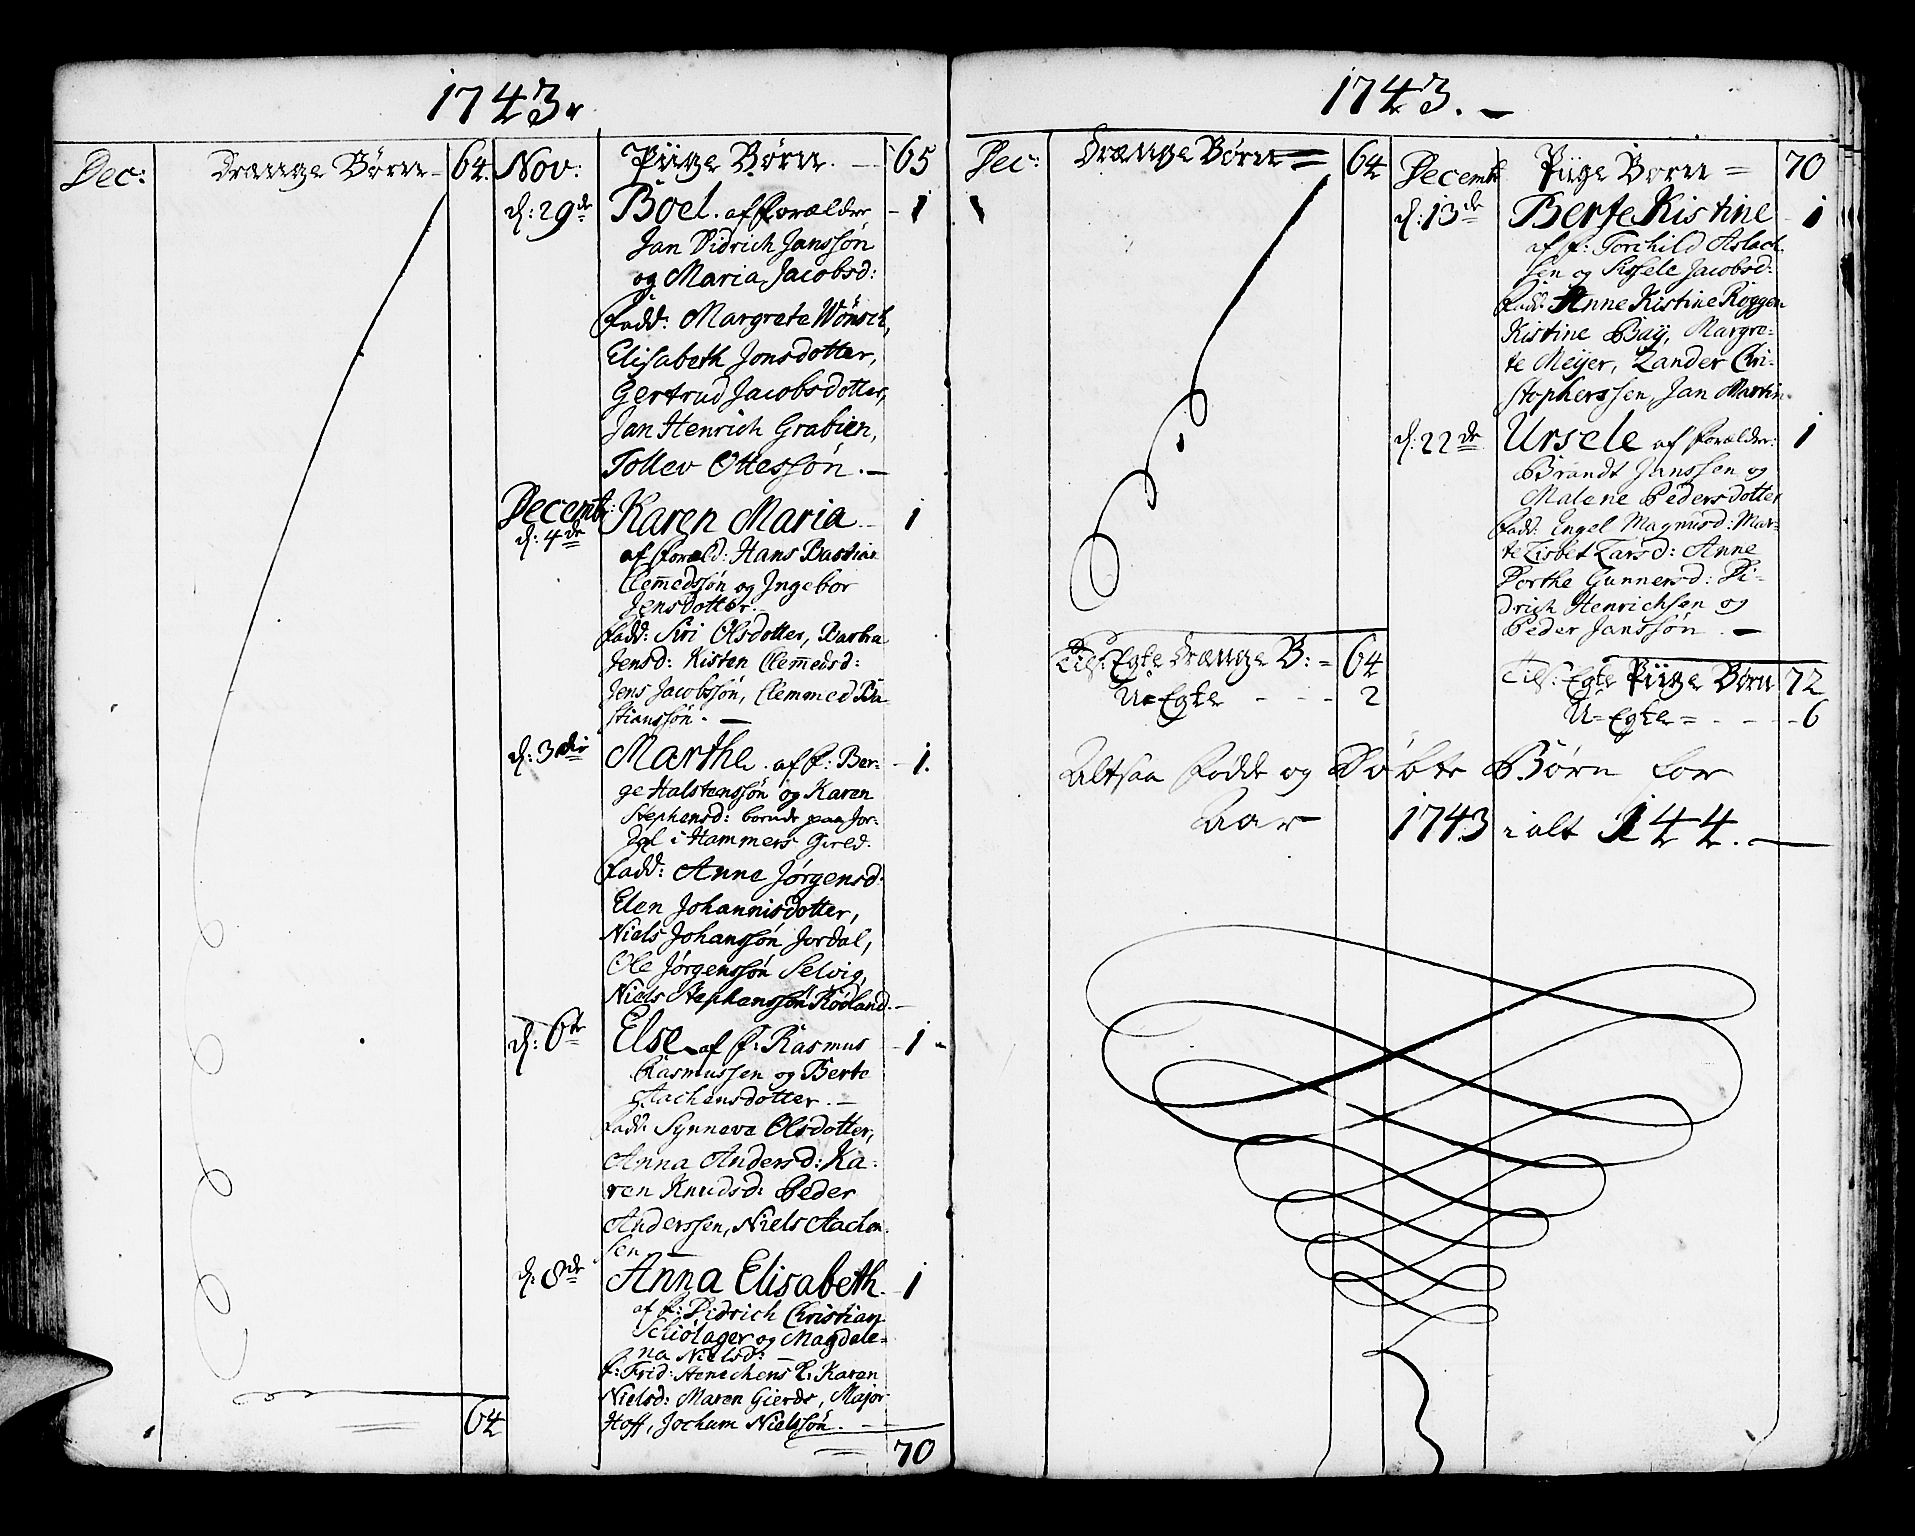 1743.
Dec: Drænge Børn - 64. Nov: Piige Børn. - 65
d: 29de Boel. af Forældre - 1
Jan Didrich Janssøn
og Maria Jacobsd:
Fadd: Margrete Wönsch,
Elisabeth Jonsdotter,
Gertrud Jacobsdotter,
Jan Henrich Grabien,
Tollev Ottessøn. -
Decemb: Karen Maria - 1
d: 4de
af Foræld: Hans Bastian
Clemedssøn og Ingebor
Jensdotter. -
Fadd: Siri Olsdotter, Barbra
Jensd: Kisten Clemedsd:
Jens Jacobssøn, Clemmed Ba
stianssøn. -
d: 3die Marthe. af F: Ber= - 1.
ge Halstenssøn og Karen
Stephensd: boende paa Jor=
dal i Hammers Gield.
Fadd: Anne Jørgensd.
Elen Johannisdotter,
Niels Johanssøn Jordal,
Ole Jørgenssøn Selvig,
Niels Stephenssøn Rødland. -
d: 6te Else af F: Rasmus - 1 -
Rasmussen og Berte
Aachensdotter. -
Fadd: Synneva Olsdotter,
Anna Andersd: Ka=
ren Knudsd: Peder
Anderssen, Niels Aachen
sen
d. 8de Anna Elisabeth. - 1
af F: Didrich Christian
Schiötager og Magdale=
na Nielsd:
F: Frid: Henechens K. Karen
Nielsd: Maren Gierds, Major
Hoff, Jochum Nielssøn. -
64
70
1743. -
Dec: Drænge Børn = 64 Decembr Piige Børn = 70
d: 13de Berte Kistine - 1
af F: Torchild Aslach
sen og Sissele Jacobsd:
Fadd: Anne Kistine Röggen
Kistine Baÿ, Margre=
te Meÿer, Zander Chri=
stopherssen, Jan Martin.
d: 22de Ursele af Forældre: 1
Brandt Janssen og
Malene Pedersdotter
Fadd: Engel Magnusd: Mar=
te Lisbet Larsd: Anne
Dorthe Gunnersd: Di=
drich Henrichsen og
Peder Janssøn. -
Tils: Egte Drænge B: = 64
U=Egte - - - 2
Tils: Egte Piige Børn 72
U=Egte = - - - 6
Altsaa Fødde og Døbte Børn for
Aar 1743 i alt 144. -